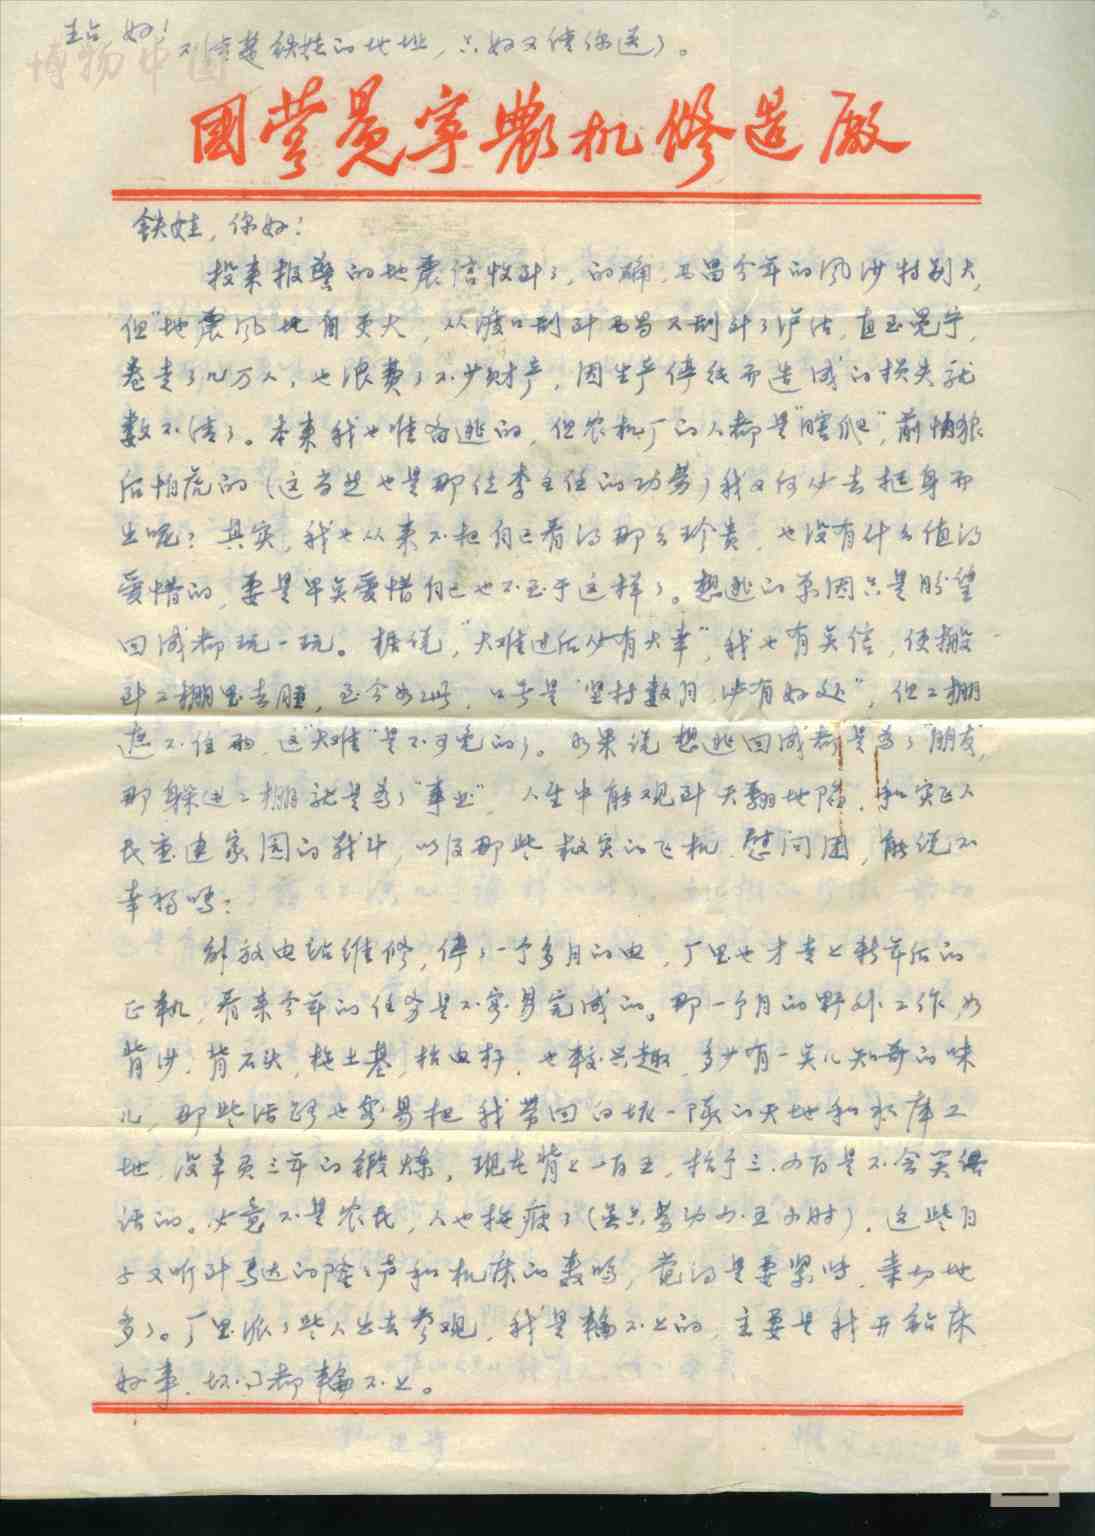 好!
不清楚铁娃的地址,只好又传你送了。
博物中国
國营冕宁農机修造廠
铁娃,你好!
投来报警的地震信收到了,的确,西昌今年的风沙特别大,
但"地震风"也自更大,从渡口刮到西昌又刮到了泸沽,直至冕宁,
卷走了几万人,也浪费了不少财产,因生产停线而造成的损失就
数不清了。本来我也准备逃的,但农机厂的人都是"瞎爬",前怕狼
后怕虎的(这当然也是那位李主任的功劳)我又何必去挺身而
出呢?其实,我也从来不把自己看得那么珍贵,也没有什么值得
爱惜的,要是早点爱惜自己也不至于这样了。想逃的原因只是盼望
回成都玩一玩。据说,"大难过后必有大幸",我也有点信,便搬
到工棚里去睡,至今如此,口号是"坚持数月,必有好处",但工棚
遮不住雨,这"大难"是不可免的了。如果说想逃回成都是为了"朋友",
那躲进工棚就是为了"事业",人生中能观到天翻地陷,和灾区人
民重建家园的战斗,以及那些救灾的飞机、慰问团,能说不
幸福吗?
解放电站维修,停了一个多月的电,厂里也才走上新年后的
正轨,看来今年的任务是不容易完成的。那一个月的野外工作,如
背沙,背石头,拖土基,抬电杆,也较兴趣,多少有一点儿知哥的味
儿,那些活路也容易把我带回白坡一队的天地和水库工
地,没辜负三年的锻炼,现在背上一百五,抬个三、四百是不会笑
话的。必竟不是农民,人也拖疲了(虽只劳动六、五小时)。这些日
子又听到马达的隆隆声和机床的轰鸣,觉得是要紧时,亲切地
多了。厂里派了些人出去参观,我是轮不上的,主要是我开钻床
好事、坏事都轮不上。